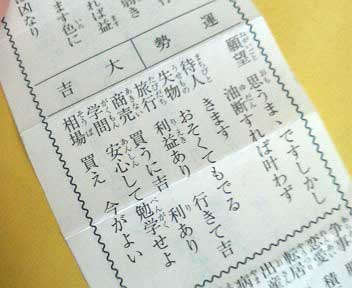 れば益
ます色に
凶なり
運勢
大吉
願望 思うまゝですしかし
油断すれば叶わず
待人 きます
失物 おそくてもでる
旅行 利益あり 行きて吉
商売 買うに吉 利あり
学問 安心して勉学せよ
相場 買え 今がよい